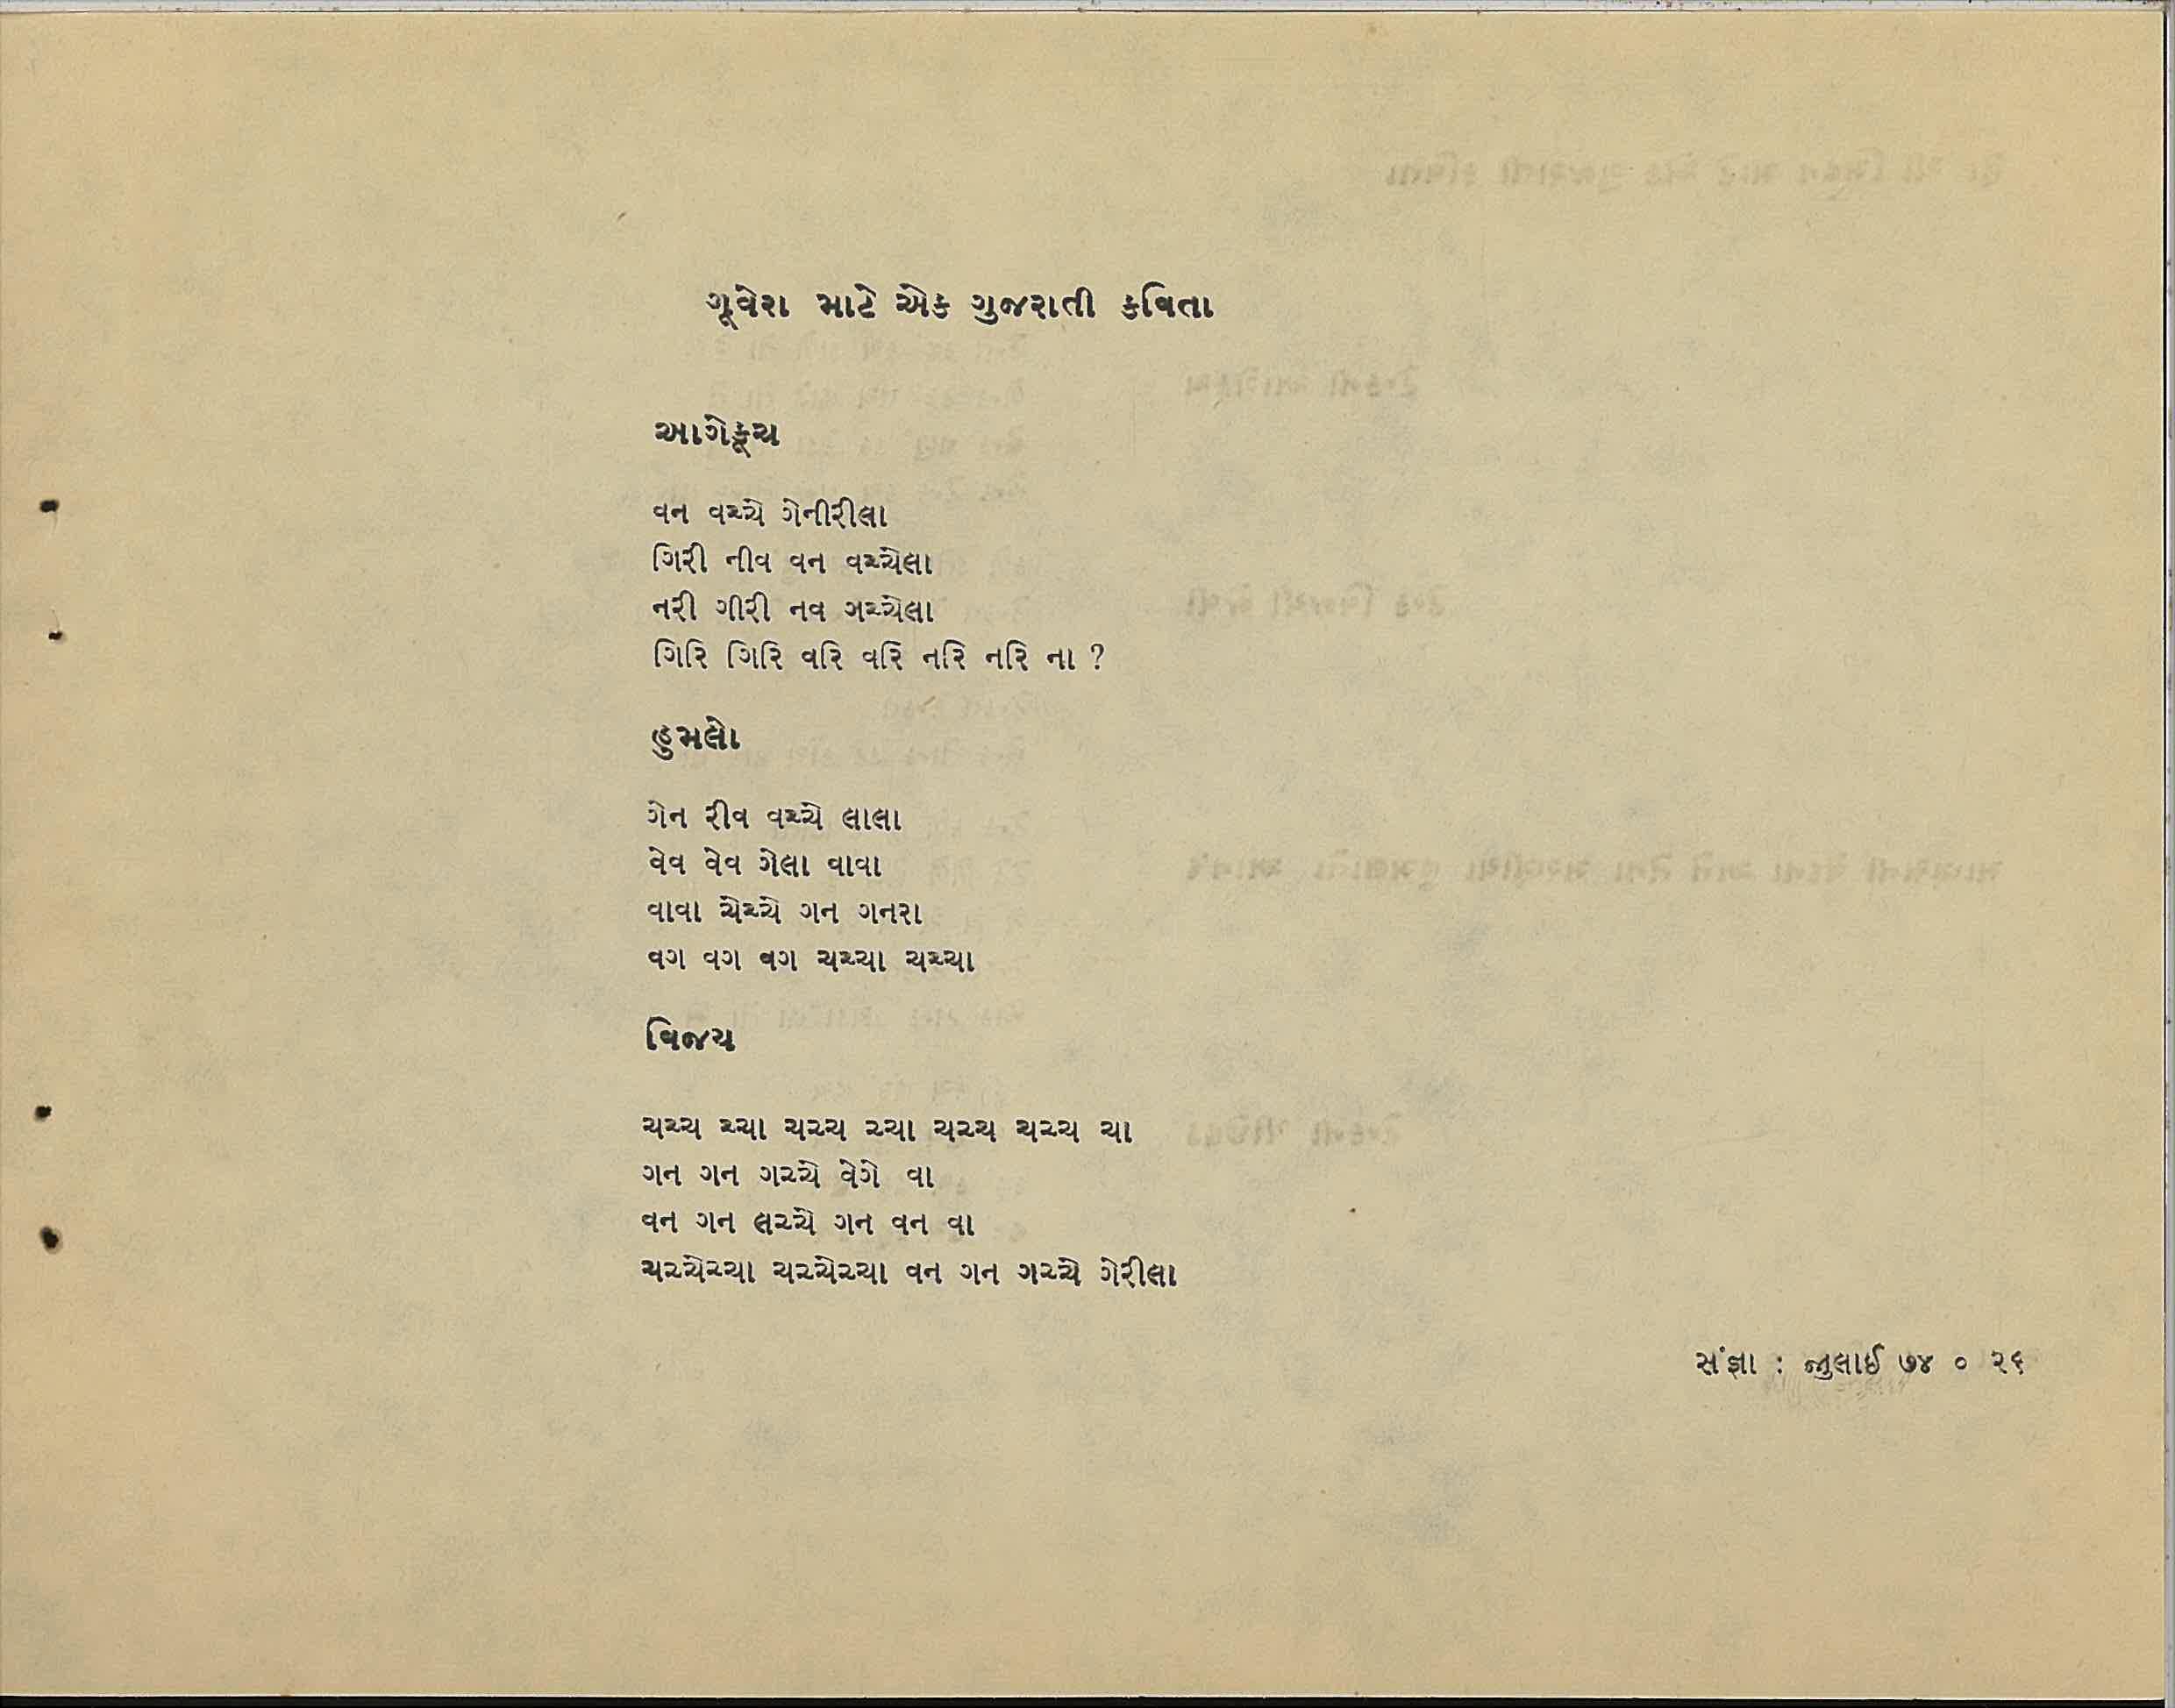 ગૂવેરા માટે એક ગુજરાતી કવિતા
આગેકૂચ
વન વચ્ચે ગેનીરીલા
ગિરી નીવ વન વચ્ચેલા
નરી ગીરી નવ ગચ્ચેલા
ગિરિ ગિરિ વરિ વરિ નરિ નરિ ના ?
હુમલો
ગેન રીવ વચ્ચે લાલા
વેવ વેવ ગેલા વાવા
વાવા ચેચ્ચે ગન ગનરા
વગ વગ વગ ચચ્ચા ચચ્ચા
વિજય
ચચ્ચ ચ્ચા ચચ્ચ ચ્ચા ચચ્ચ ચચ્ચ ચા
ગન ગન ગચ્ચે વેગે વા
વન ગન લચ્ચે ગન વન વા
ચચ્ચેચ્ચા ચચ્ચેચ્ચા વન ગન ગચ્ચે ગેરીલા
સંજ્ઞા : જુલાઈ ૭૪ ૦ ૨૬